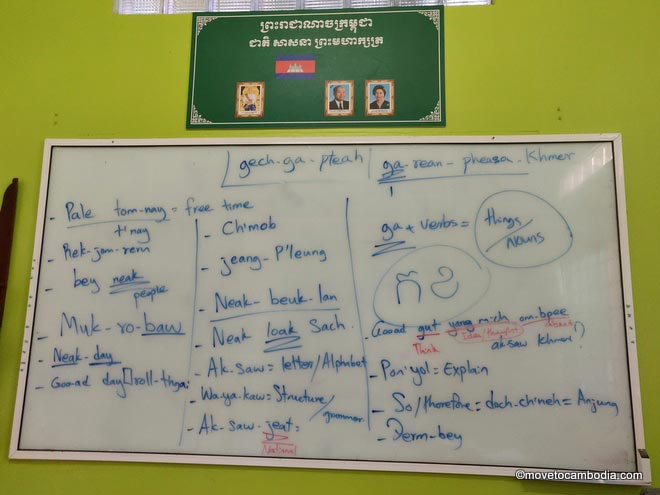 ព្រះរាជាណាចក្រកម្ពុជា
ជាតិ សាសនា ព្រះមហាក្សត្រ
gech-ga-pteah
ga-rean-pheasa-Khmer
- Pale tom-nay = free time
t'nay
- Rek-jom-rern
- bey neak
people
- Muk-ro-baw
- Neak-day
- Goo-ad day roll-thgai
- Ch'mob
- jeang-P'leung
- Neak-beuk-lan
- Neak loak Sach
- Ak-saw = letter/Alphabet
- Wa-ya-kaw = Structure/
grammar
- Ak-saw-jeat =
National
ga + verbs = things/
Nouns
ក ខ
- Gooad gut yang mich om-bpee
Think
Idea/thought
about
ak-saw Khmer?
- Pon'yol = Explain
- So/therefore = doch-ch'neh = Anjung
- Derm-bey
©movetocambodia.com